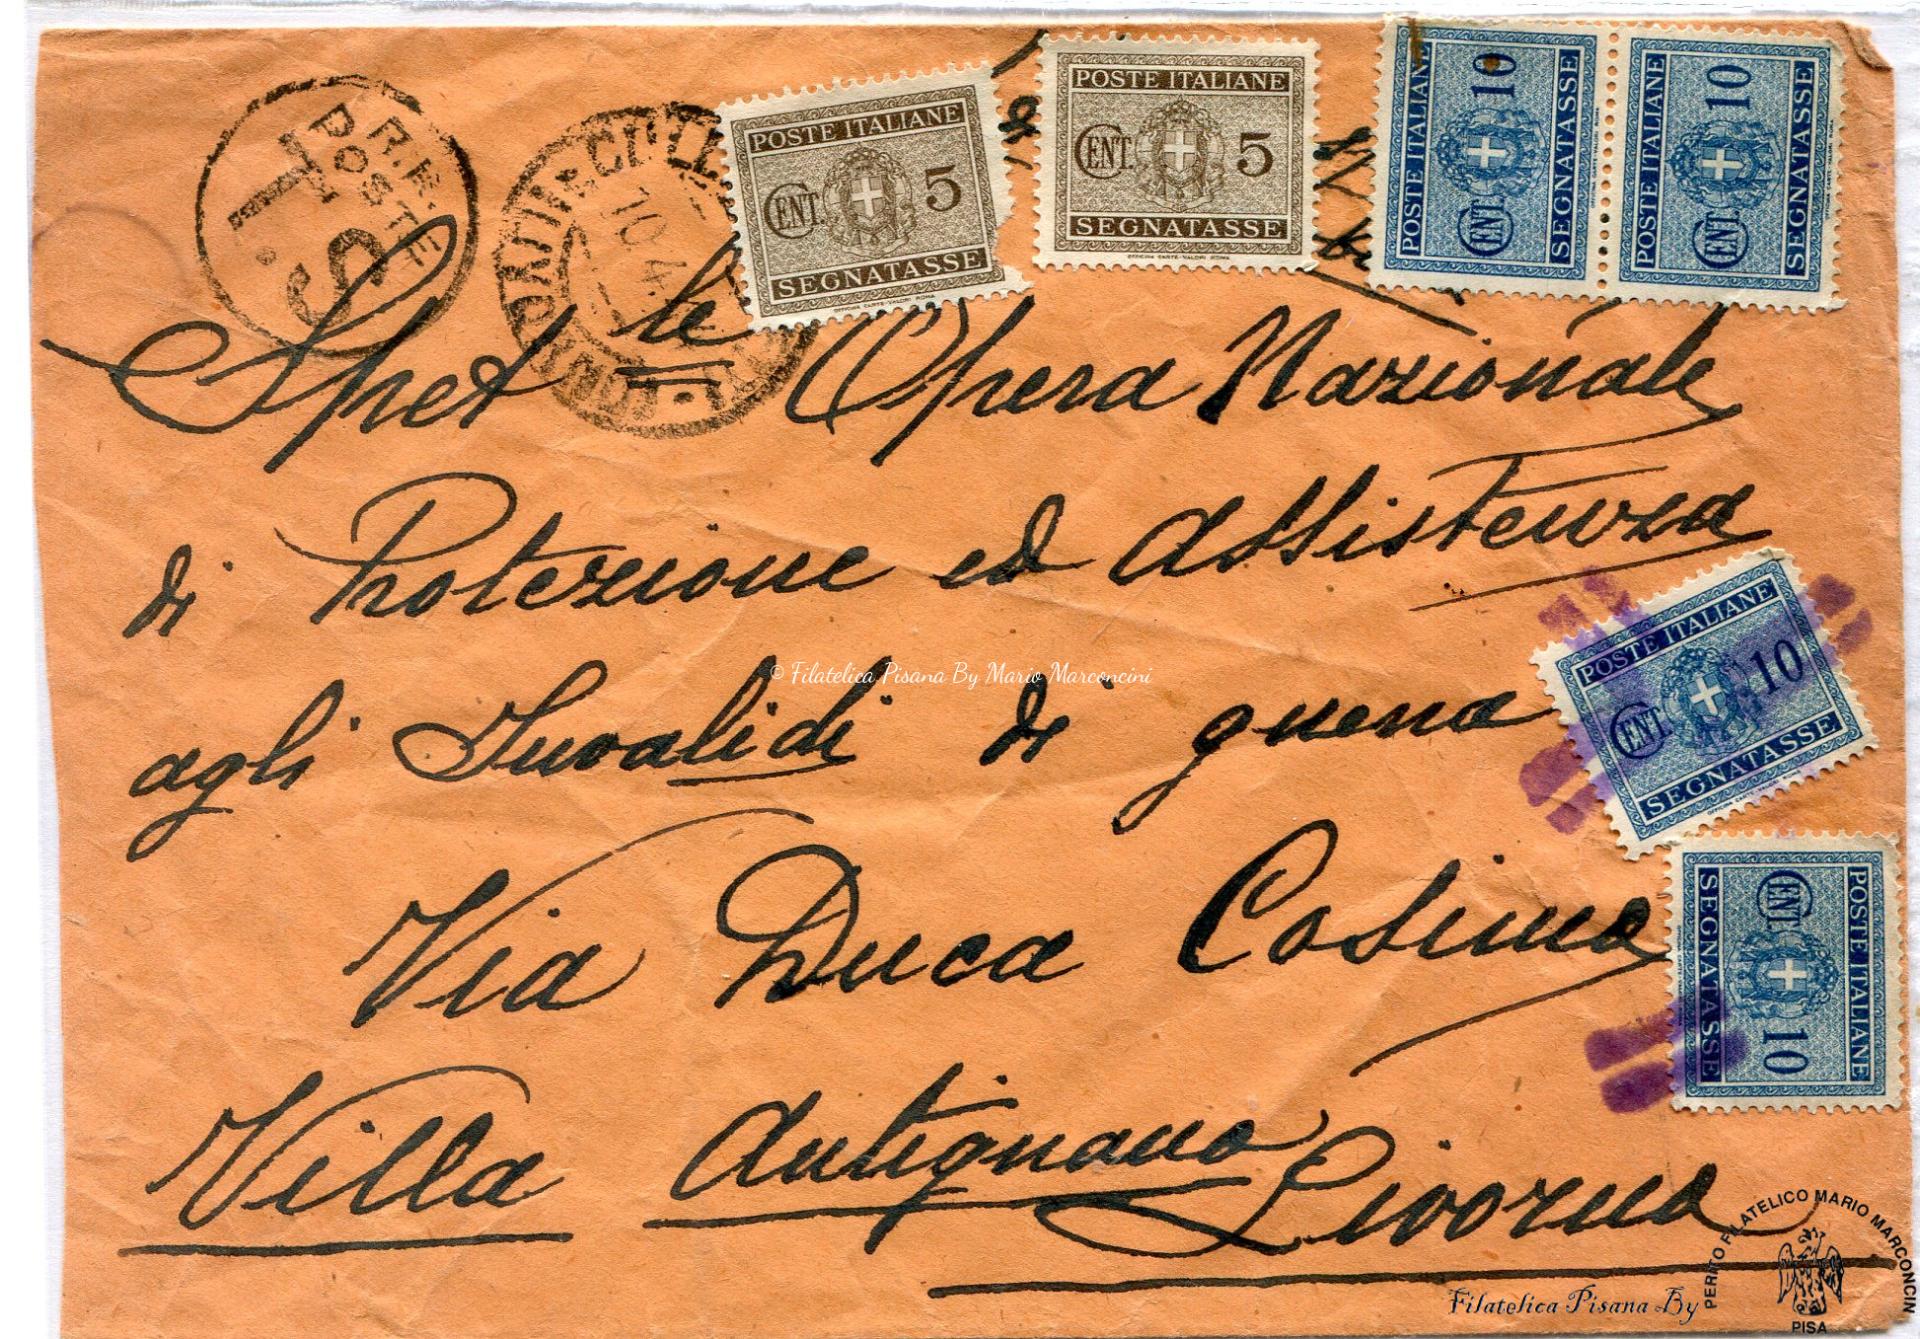 R.R.
POSTE
T. S
MONTESCU
10.4
POSTE ITALIANE
CENT. 5
SEGNATASSE
OFFICINA CARTE-VALORI ROMA
POSTE ITALIANE
CENT. 5
SEGNATASSE
OFFICINA CARTE-VALORI ROMA
POSTE ITALIANE
CENT. 10
SEGNATASSE
POSTE ITALIANE
CENT. 10
SEGNATASSE
Spet le Opera Nazionale
di Protezione ed Assistenza
agli Invalidi di guerra
Via Duca Cosimo
Villa Antignano Livorno
POSTE ITALIANE
CENT. 10
SEGNATASSE
OFFICINA CARTE-VALORI ROMA
POSTE ITALIANE
CENT. 10
SEGNATASSE
© Filatelica Pisana By Mario Marconcini
Filatelica Pisana By
PERITO FILATELICO MARIO MARCONCINI
PISA